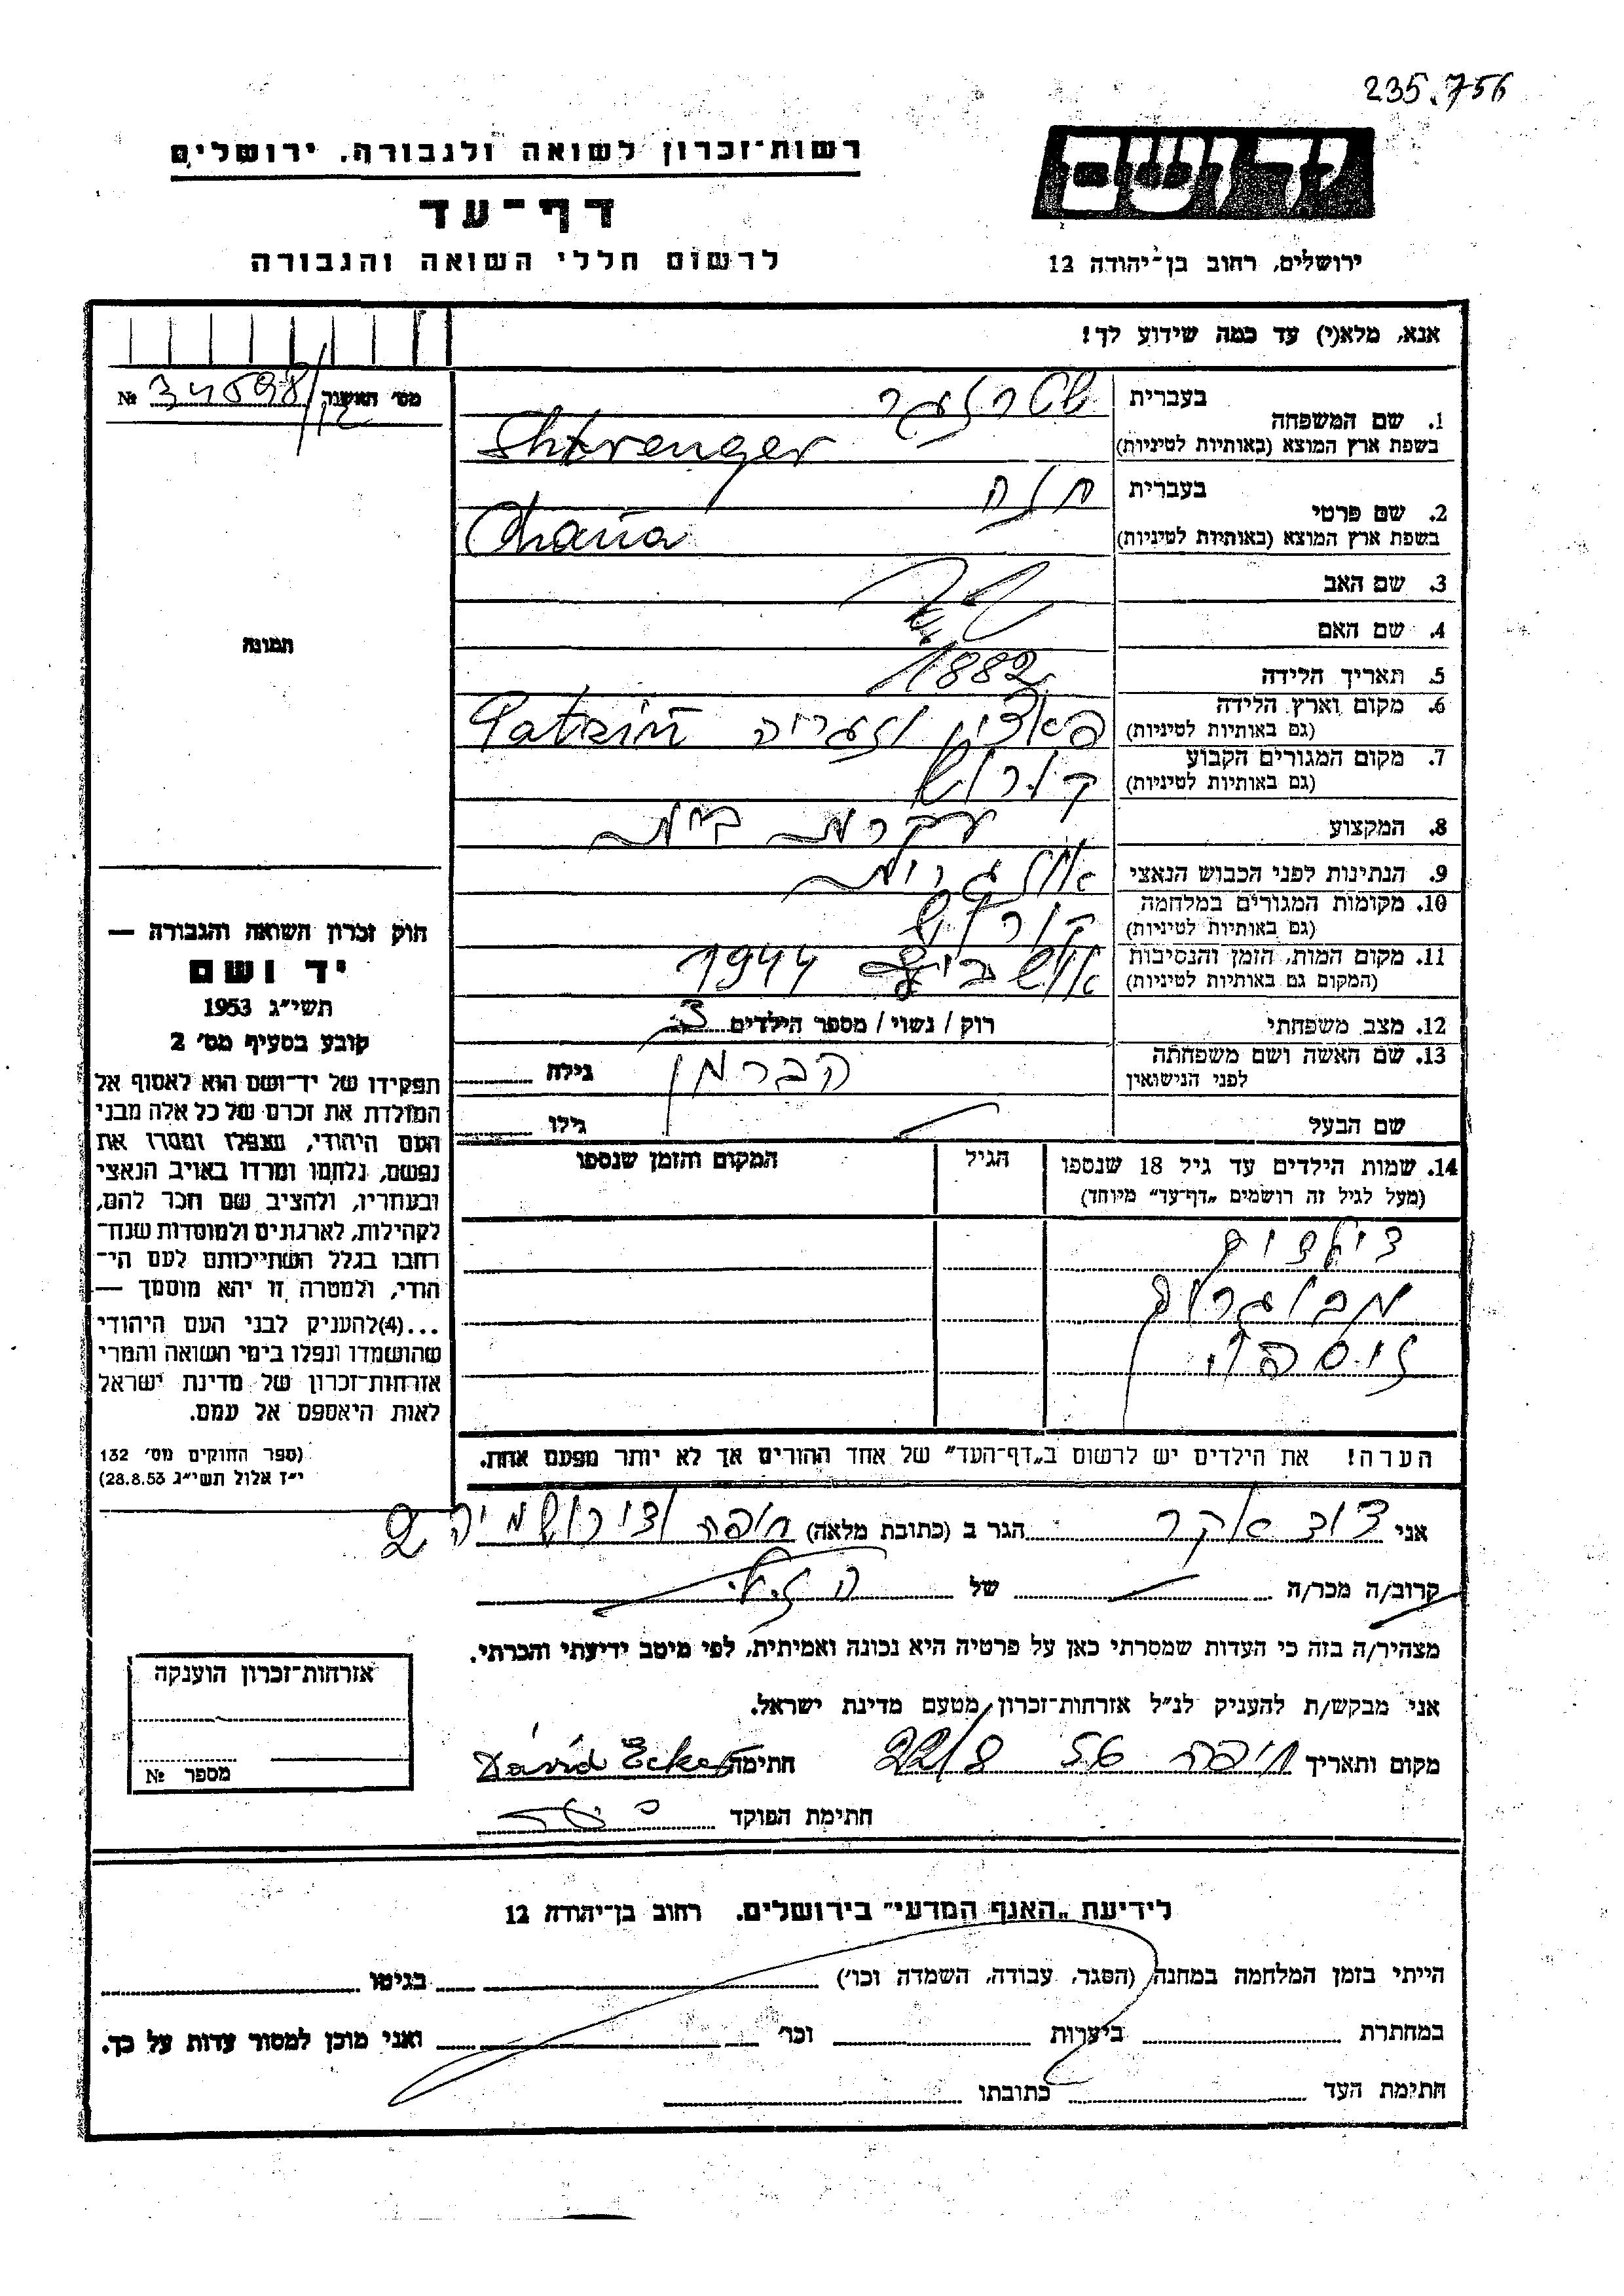 235.756
רשות־זכרון לשואה ולגבורה. ירושלים
יד ושם
דף־עד
לרשום חללי השואה והגבורה
ירושלים, רחוב בן־יהודה 12
אנא, מלא(י) עד כמה שידוע לך!
1. שם המשפחה
בעברית שטרנגער
בשפת ארץ המוצא (באותיות לטיניות) Shtrenger
2. שם פרטי
בעברית חנה
בשפת ארץ המוצא (באותיות לטיניות) Chana
3. שם האב
4. שם האם
5. תאריך הלידה 1882
6. מקום וארץ הלידה
(גם באותיות לטיניות)
7. מקום המגורים הקבוע
(גם באותיות לטיניות)
8. המקצוע עקרת בית
9. הנתינות לפני הכבוש הנאצי
10. מקומות המגורים במלחמה
(גם באותיות לטיניות)
11. מקום המות, הזמן והנסיבות 1944
(המקום גם באותיות לטיניות)
12. מצב משפחתי רוק / נשוי / מספר הילדים 3
13. שם האשה ושם משפחתה הברמן גילה
לפני הנישואין
שם הבעל גילו
14. שמות הילדים עד גיל 18 שנספו הגיל המקום והזמן שנספו
(מעל לגיל זה רושמים „דף־עד" מיוחד)
מבוגרים
הערה! את הילדים יש לרשום ב„דף־העד" של אחד ההורים אך לא יותר מפעם אחת.
№ מס' האשנה
תמונה
חוק זכרון השואה והגבורה —
יד ושם
תשי"ג 1953
קובע בסעיף מס' 2
תפקידו של יד־ושם הוא לאסוף אל
המולדת את זכרם של כל אלה מבני
העם היהודי, שנפלו ומסרו את
נפשם, נלחמו ומרדו באויב הנאצי
ובעוזריו, ולהציב שם וזכר להם,
לקהילות, לארגונים ולמוסדות שנח־
רבו בגלל השתייכותם לעם הי־
הודי, ולמטרה זו יהא מוסמך —
...(4)להעניק לבני העם היהודי
שהושמדו ונפלו בימי השואה והמרי
אזרחות־זכרון של מדינת ישראל
לאות היאספם אל עמם.
(ספר החוקים מס' 132
י"ז אלול תשי"ג 28.8.53)
אני דוד אקר הגר ב (כתובת מלאה) חיפה
קרוב/ה מכר/ה של הנ"ל
מצהיר/ה בזה כי העדות שמסרתי כאן על פרטיה היא נכונה ואמיתית, לפי מיטב ידיעתי והכרתי.
אני מבקש/ת להעניק לנ"ל אזרחות־זכרון מטעם מדינת ישראל.
מקום ותאריך חיפה 56 22/8 חתימה Dávid Ecker
חתימת הפוקד
אזרחות־זכרון הוענקה
№ מספר
לידיעת „האגף המדעי" בירושלים. רחוב בן־יהודה 12
הייתי בזמן המלחמה במחנה (הסגר, עבודה, השמדה וכו') בגיטו
במחתרת ביערות וכו' ואני מוכן למסור עדות על כך.
חתימת העד כתובתו